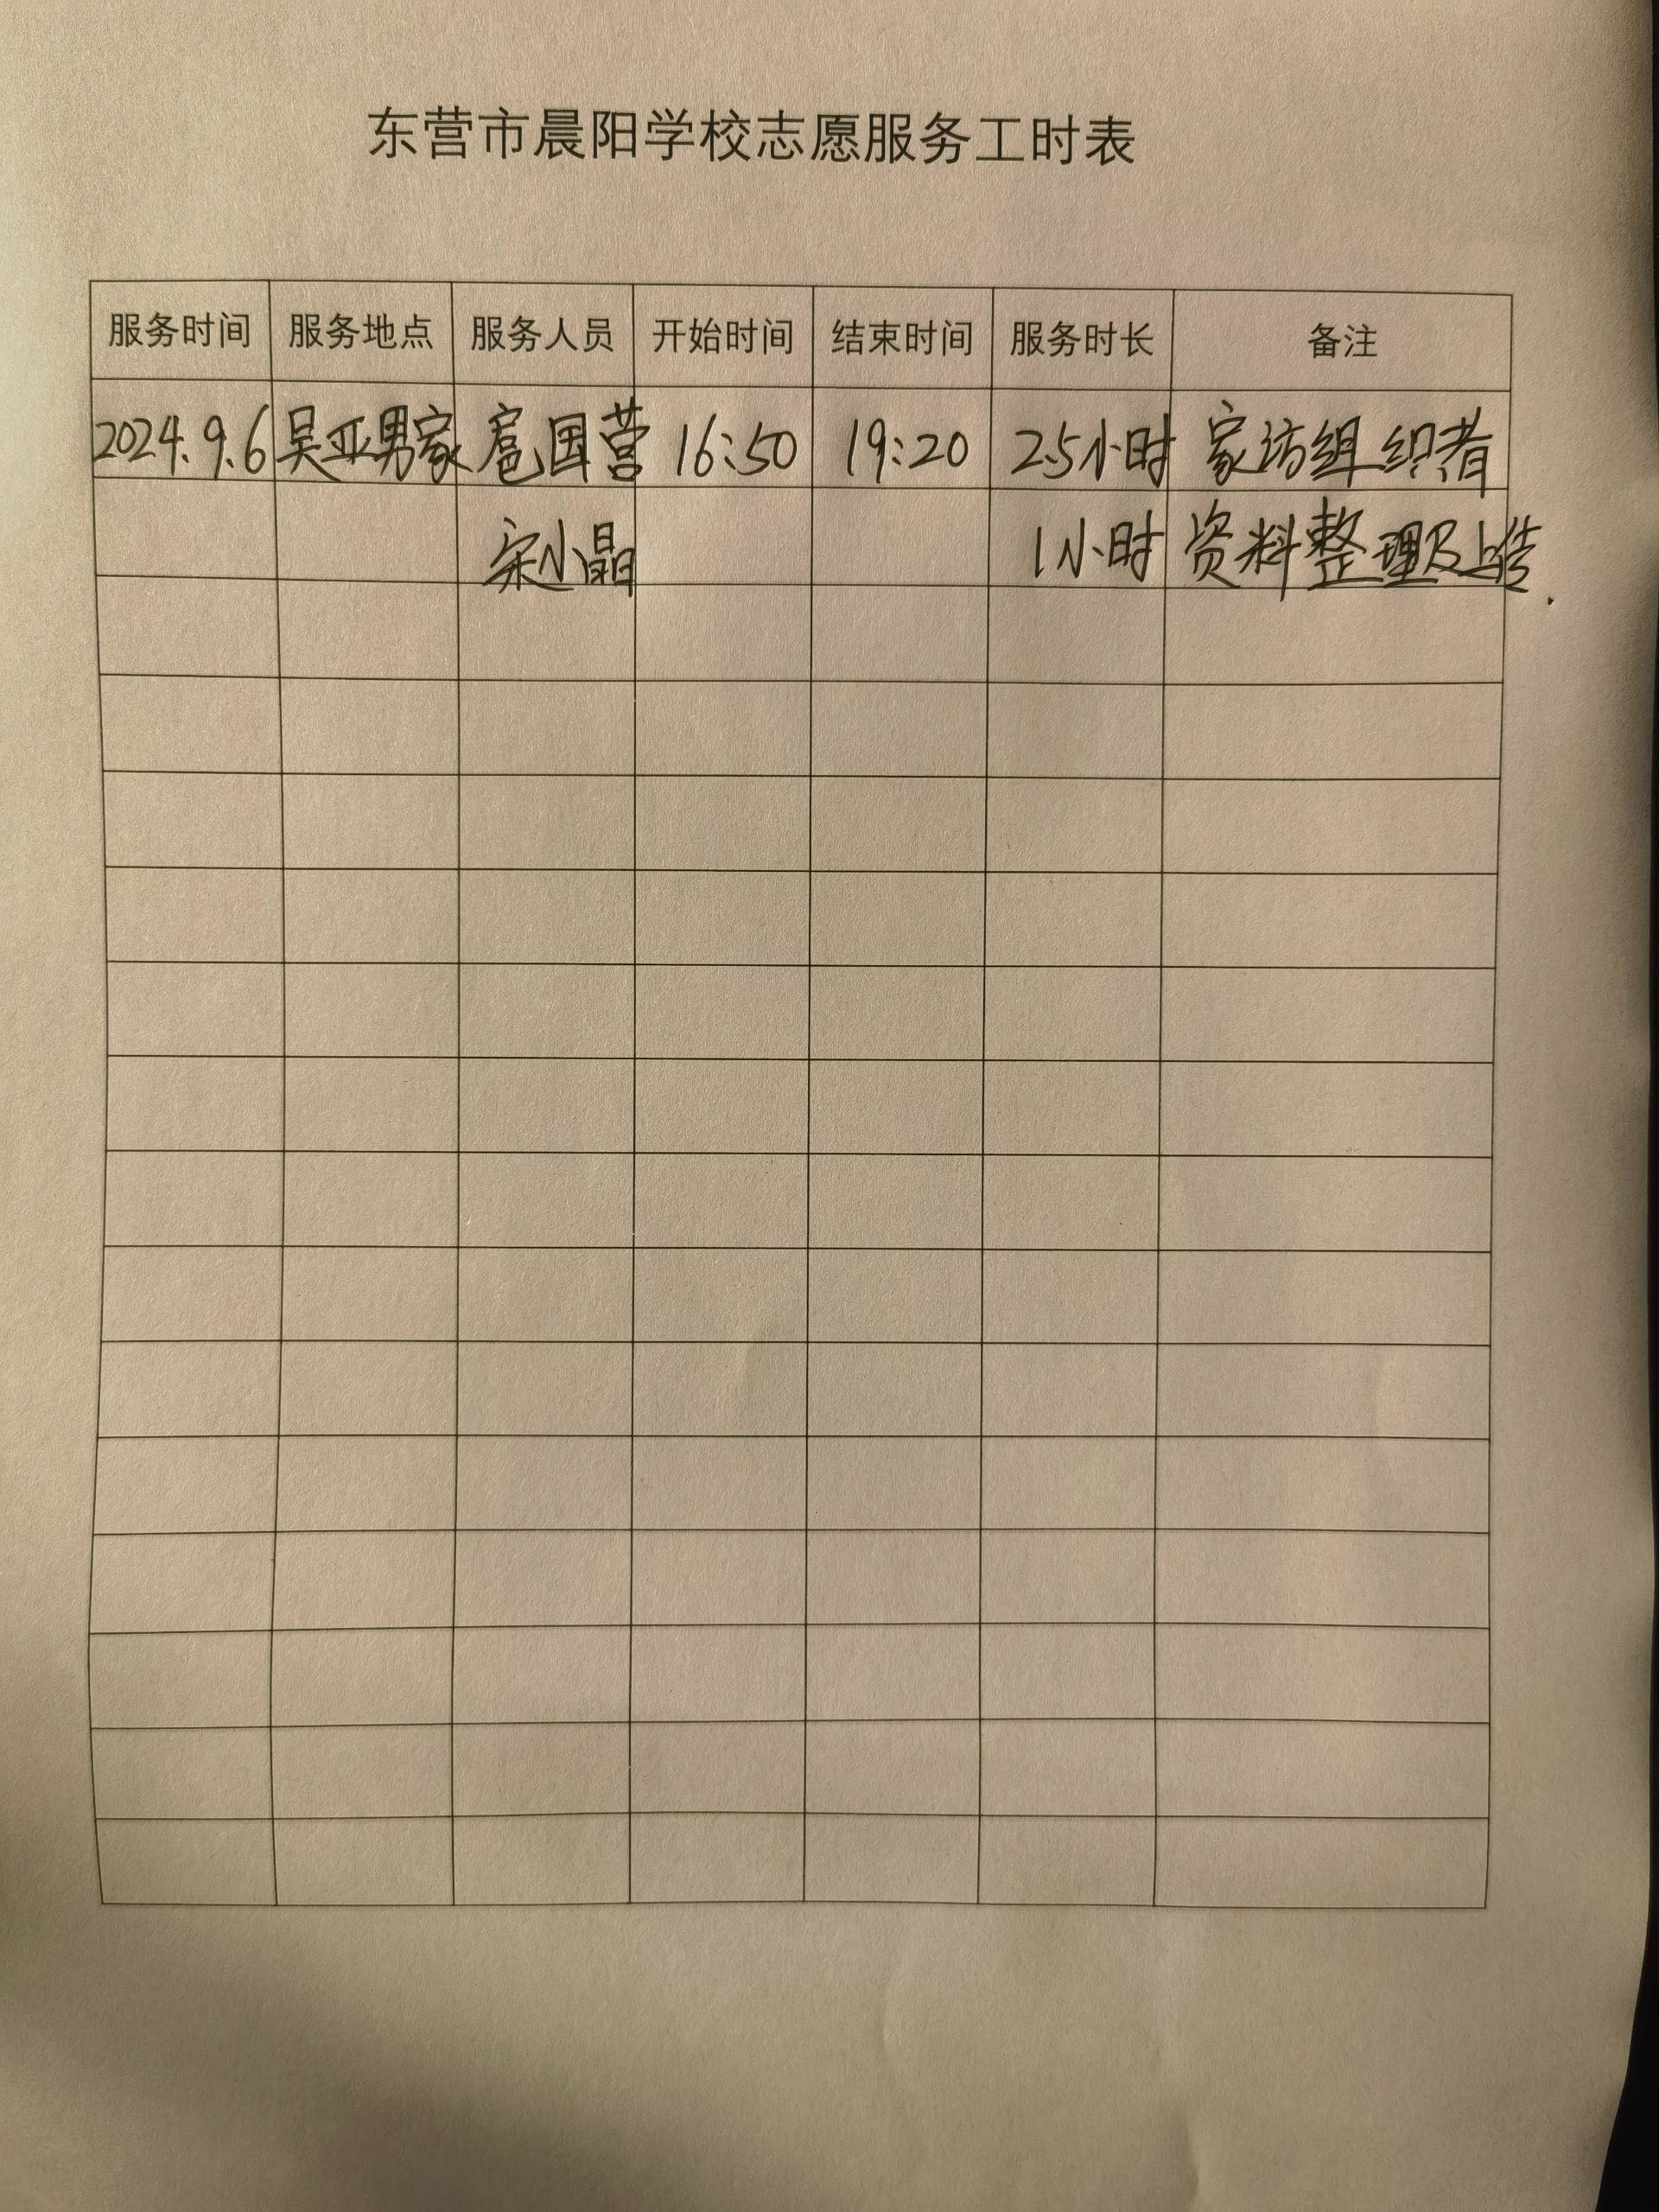 东营市晨阳学校志愿服务工时表
服务时间 服务地点 服务人员 开始时间 结束时间 服务时长 备注
2024.9.6 吴亚男家 扈国营 16:50 19:20 2.5小时 家访组织者
宋小晶 1小时 资料整理及上传.